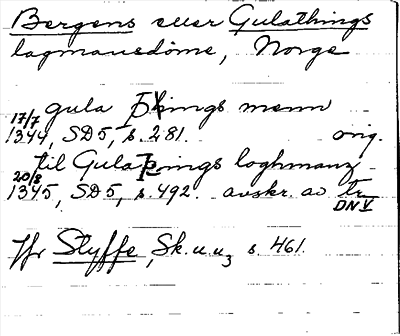 Bergens eller Gulathings
lagmansdöme, Norge
gula Þings menn
17/7
1344, SD5, s. 281. orig.
til Gulaþings loghmanz
20/8
1345, SD5, s. 492. avskr. av tr.
DN V
Jfr Styffe, Sk.u.u3 s. 461.